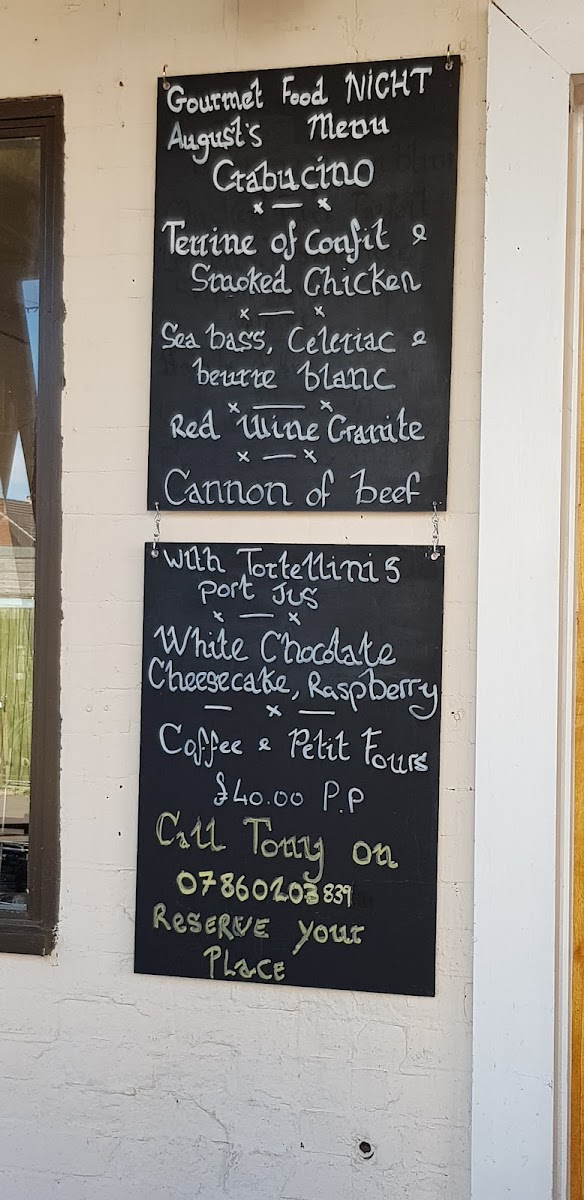 Gourmet Food NIGHT
August's Menu
Crabucino
x — x
Terrine of Confit &
Smoked Chicken
x — x
Sea bass, Celeriac &
beurre blanc
x — x
Red Wine Granite
x — x
Cannon of beef
with Tortellini &
Port Jus
x — x
White Chocolate
Cheesecake, Raspberry
— x —
Coffee & Petit Fours
£40.00 P.P
Call Tony on
07860203839
RESERVE your
PLACE